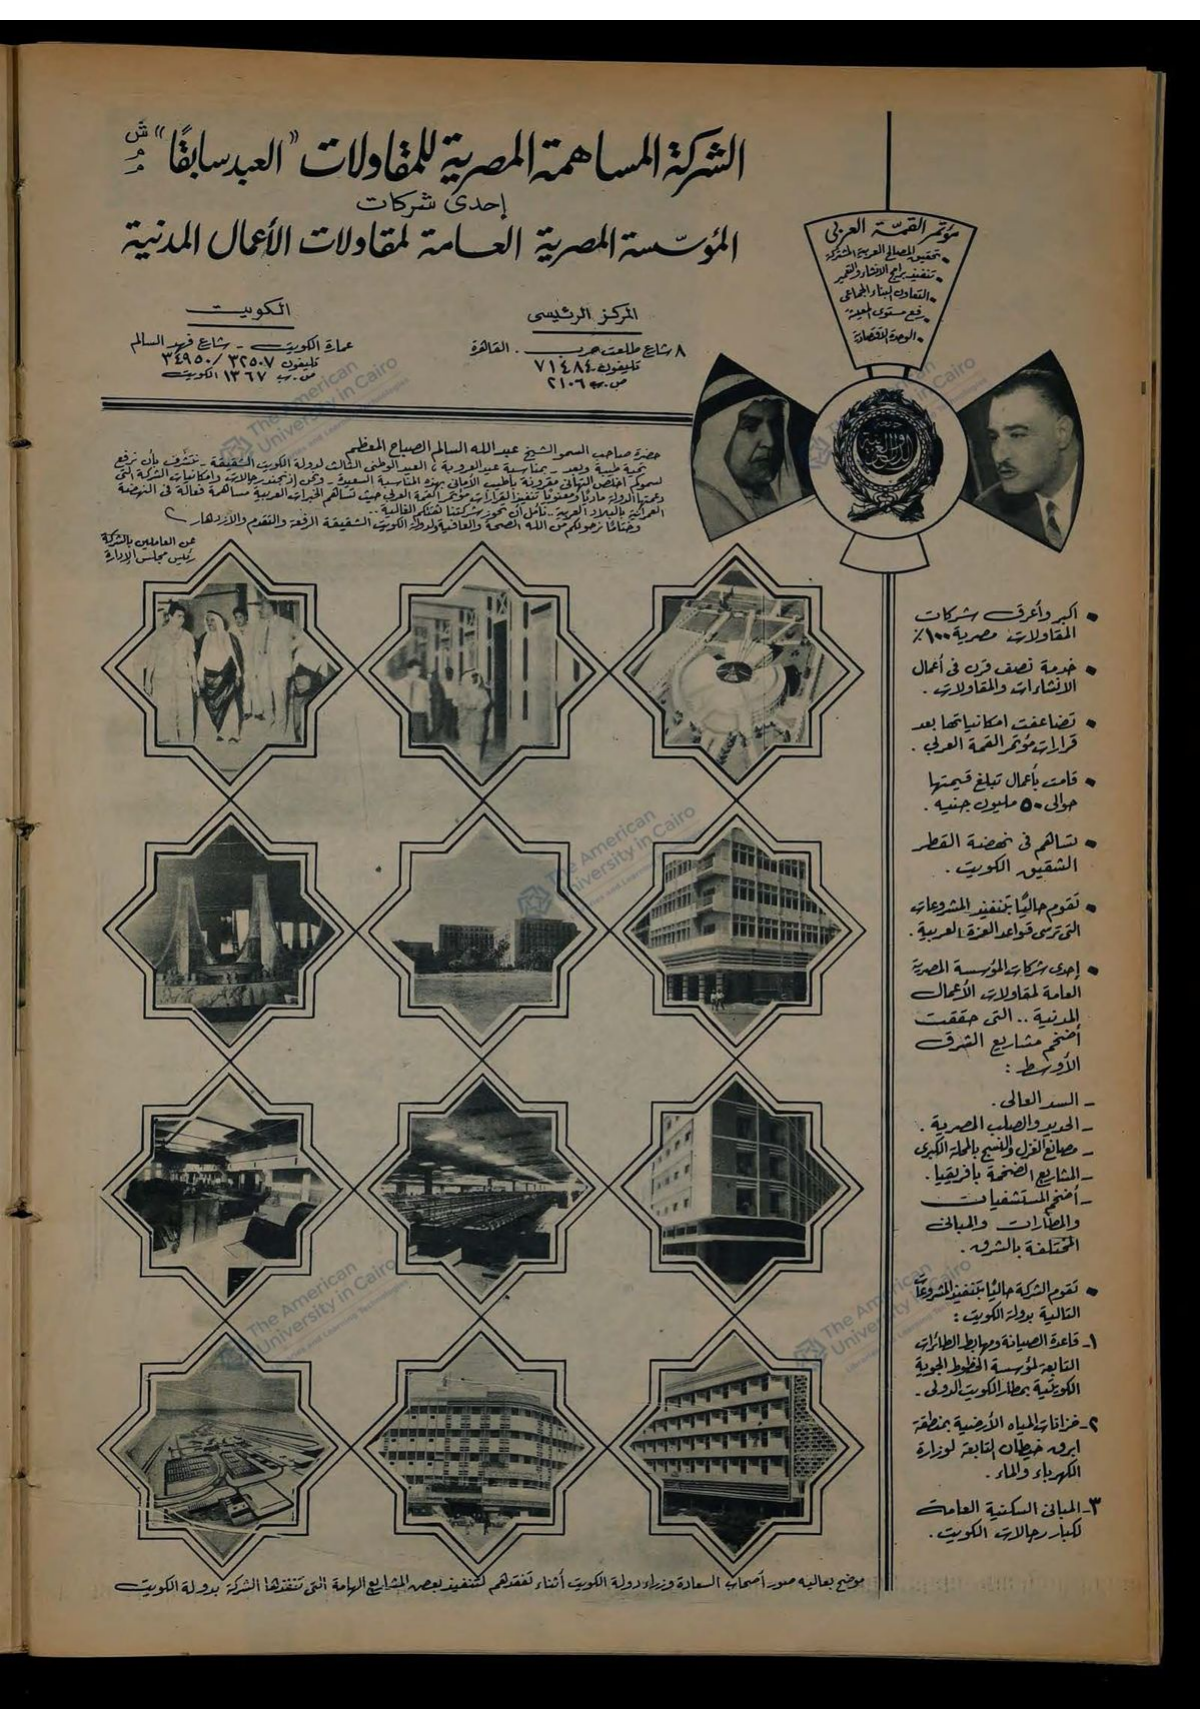 الشركة المساهمة المصرية للمقاولات "العبد سابقًا" ش م م
إحدى شركات
المؤسّسة المصرية العامة لمقاولات الأعمال المدنية
المركز الرئيسى
٨ شارع طلعت حرب . القاهرة
تليفون ٧١٤٨٤
ص.ب ٢١٠٦
الكويت
عمارة الكويت - شارع فهد السالم
تليفون ٣٢٥٠٧ / ٣٤٩٥٠
ص.ب ١٣٦٧ الكويت
مؤتمر القمّة العربى
• تحقيق المصالح العربية المشتركة
• تنفيذ برامج الانشاء والتعمير
• التعاون البناء الجماعى
• رفع مستوى المعيشة
• الوحدة الاقتصادية
حضرة صاحب السمو الشيخ عبد الله السالم الصباح المعظم
تحية طيبة وبعد - بمناسبة عيد العروبة ، العيد الوطنى الثالث لدولة الكويت الشقيقة - نتشرف بأن نرفع
لسموكم أخلص التهانى مقرونة بأطيب الأمانى بهذه المناسبة السعيدة - ونحن إذ نجند رجالات وامكانيات الشركة التى
دعمتها الدولة ماديًا ومعنويًا تنفيذًا لقرارات مؤتمر القمة العربى حيث تساهم الخبرات العربية مساهمة فعالة فى النهضة
العمرانية بالبلاد العربية - نأمل أن تحوز شركتنا ثقتكم الغالية ..
وختامًا نرجو لكم من الله الصحة والعافية ولدولة الكويت الشقيقة الرفعة والتقدم والازدهار
عن العاملين بالشركة
رئيس مجلس الإدارة
• أكبر وأعرق شركات
المقاولات مصرية ١٠٠٪
• خدمة نصف قرن فى أعمال
الانشاءات والمقاولات .
• تضاعفت امكانياتها بعد
قرارات مؤتمر القمة العربى .
• قامت بأعمال تبلغ قيمتها
حوالى ٥٠ مليون جنيه .
• تساهم فى نهضة القطر
الشقيق الكويت .
• تقوم حاليًا بتنفيذ المشروعات
التى ترسى قواعد العزة العربية .
• إحدى شركات المؤسسة المصرية
العامة لمقاولات الأعمال
المدنية .. التى حققت
أضخم مشاريع الشرق
الأوسط :
- السد العالى .
- الحديد والصلب المصرية .
- مصانع الغزل والنسيج بالمحلة الكبرى
- المشاريع الضخمة بافريقيا .
- أضخم المستشفيات
والمطارات والمبانى
المختلفة بالشرق .
• تقوم الشركة حاليًا بتنفيذ المشروعات
التالية بدولة الكويت :
١- قاعدة الصيانة ومهابط الطائرات
التابعة لمؤسسة الخطوط الجوية
الكويتية بمطار الكويت الدولى .
٢- خزانات المياه الأرضية بمنطقة
ابرق خيطان التابعة لوزارة
الكهرباء والماء .
٣- المبانى السكنية العامة
لكبار رجالات الكويت .
موضح بعاليه صور أصحاب السعادة وزراء دولة الكويت أثناء تفقدهم لتنفيذ بعض المشاريع الهامة التى تنفذها الشركة بدولة الكويت
The American
University in Cairo
Libraries and Learning Technologies